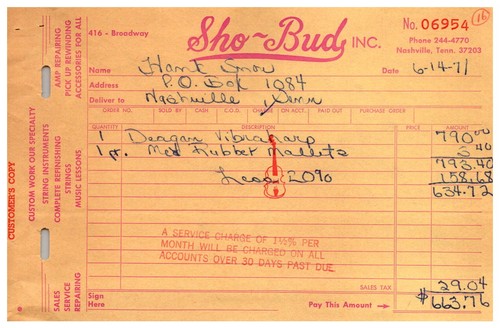 416 - Broadway
Sho~Bud, INC.
No. 06954
16
Phone 244-4770
Nashville, Tenn. 37203
Name Hank Snow
Date 6-14-71
Address P.O. Box 1084
Deliver to Nashville, Tenn
ORDER NO. SOLD BY CASH C.O.D. CHARGE ON ACCT. PAID OUT PURCHASE ORDER
QUANTITY DESCRIPTION PRICE AMOUNT
1 Deagan Vibraharp 790.00
1 pr. Med Rubber Mallets 3.40
793.40
Less 20% 158.68
634.72
A SERVICE CHARGE OF 1½% PER
MONTH WILL BE CHARGED ON ALL
ACCOUNTS OVER 30 DAYS PAST DUE
SALES TAX 29.04
Sign
Here
Pay This Amount → $663.76
CUSTOMER'S COPY
CUSTOM WORK OUR SPECIALTY
SALES
SERVICE
REPAIRING
STRING INSTRUMENTS
COMPLETE REFINISHING
STRINGS
MUSIC LESSONS
AMP REPAIRING
PICK UP REWINDING
ACCESSORIES FOR ALL